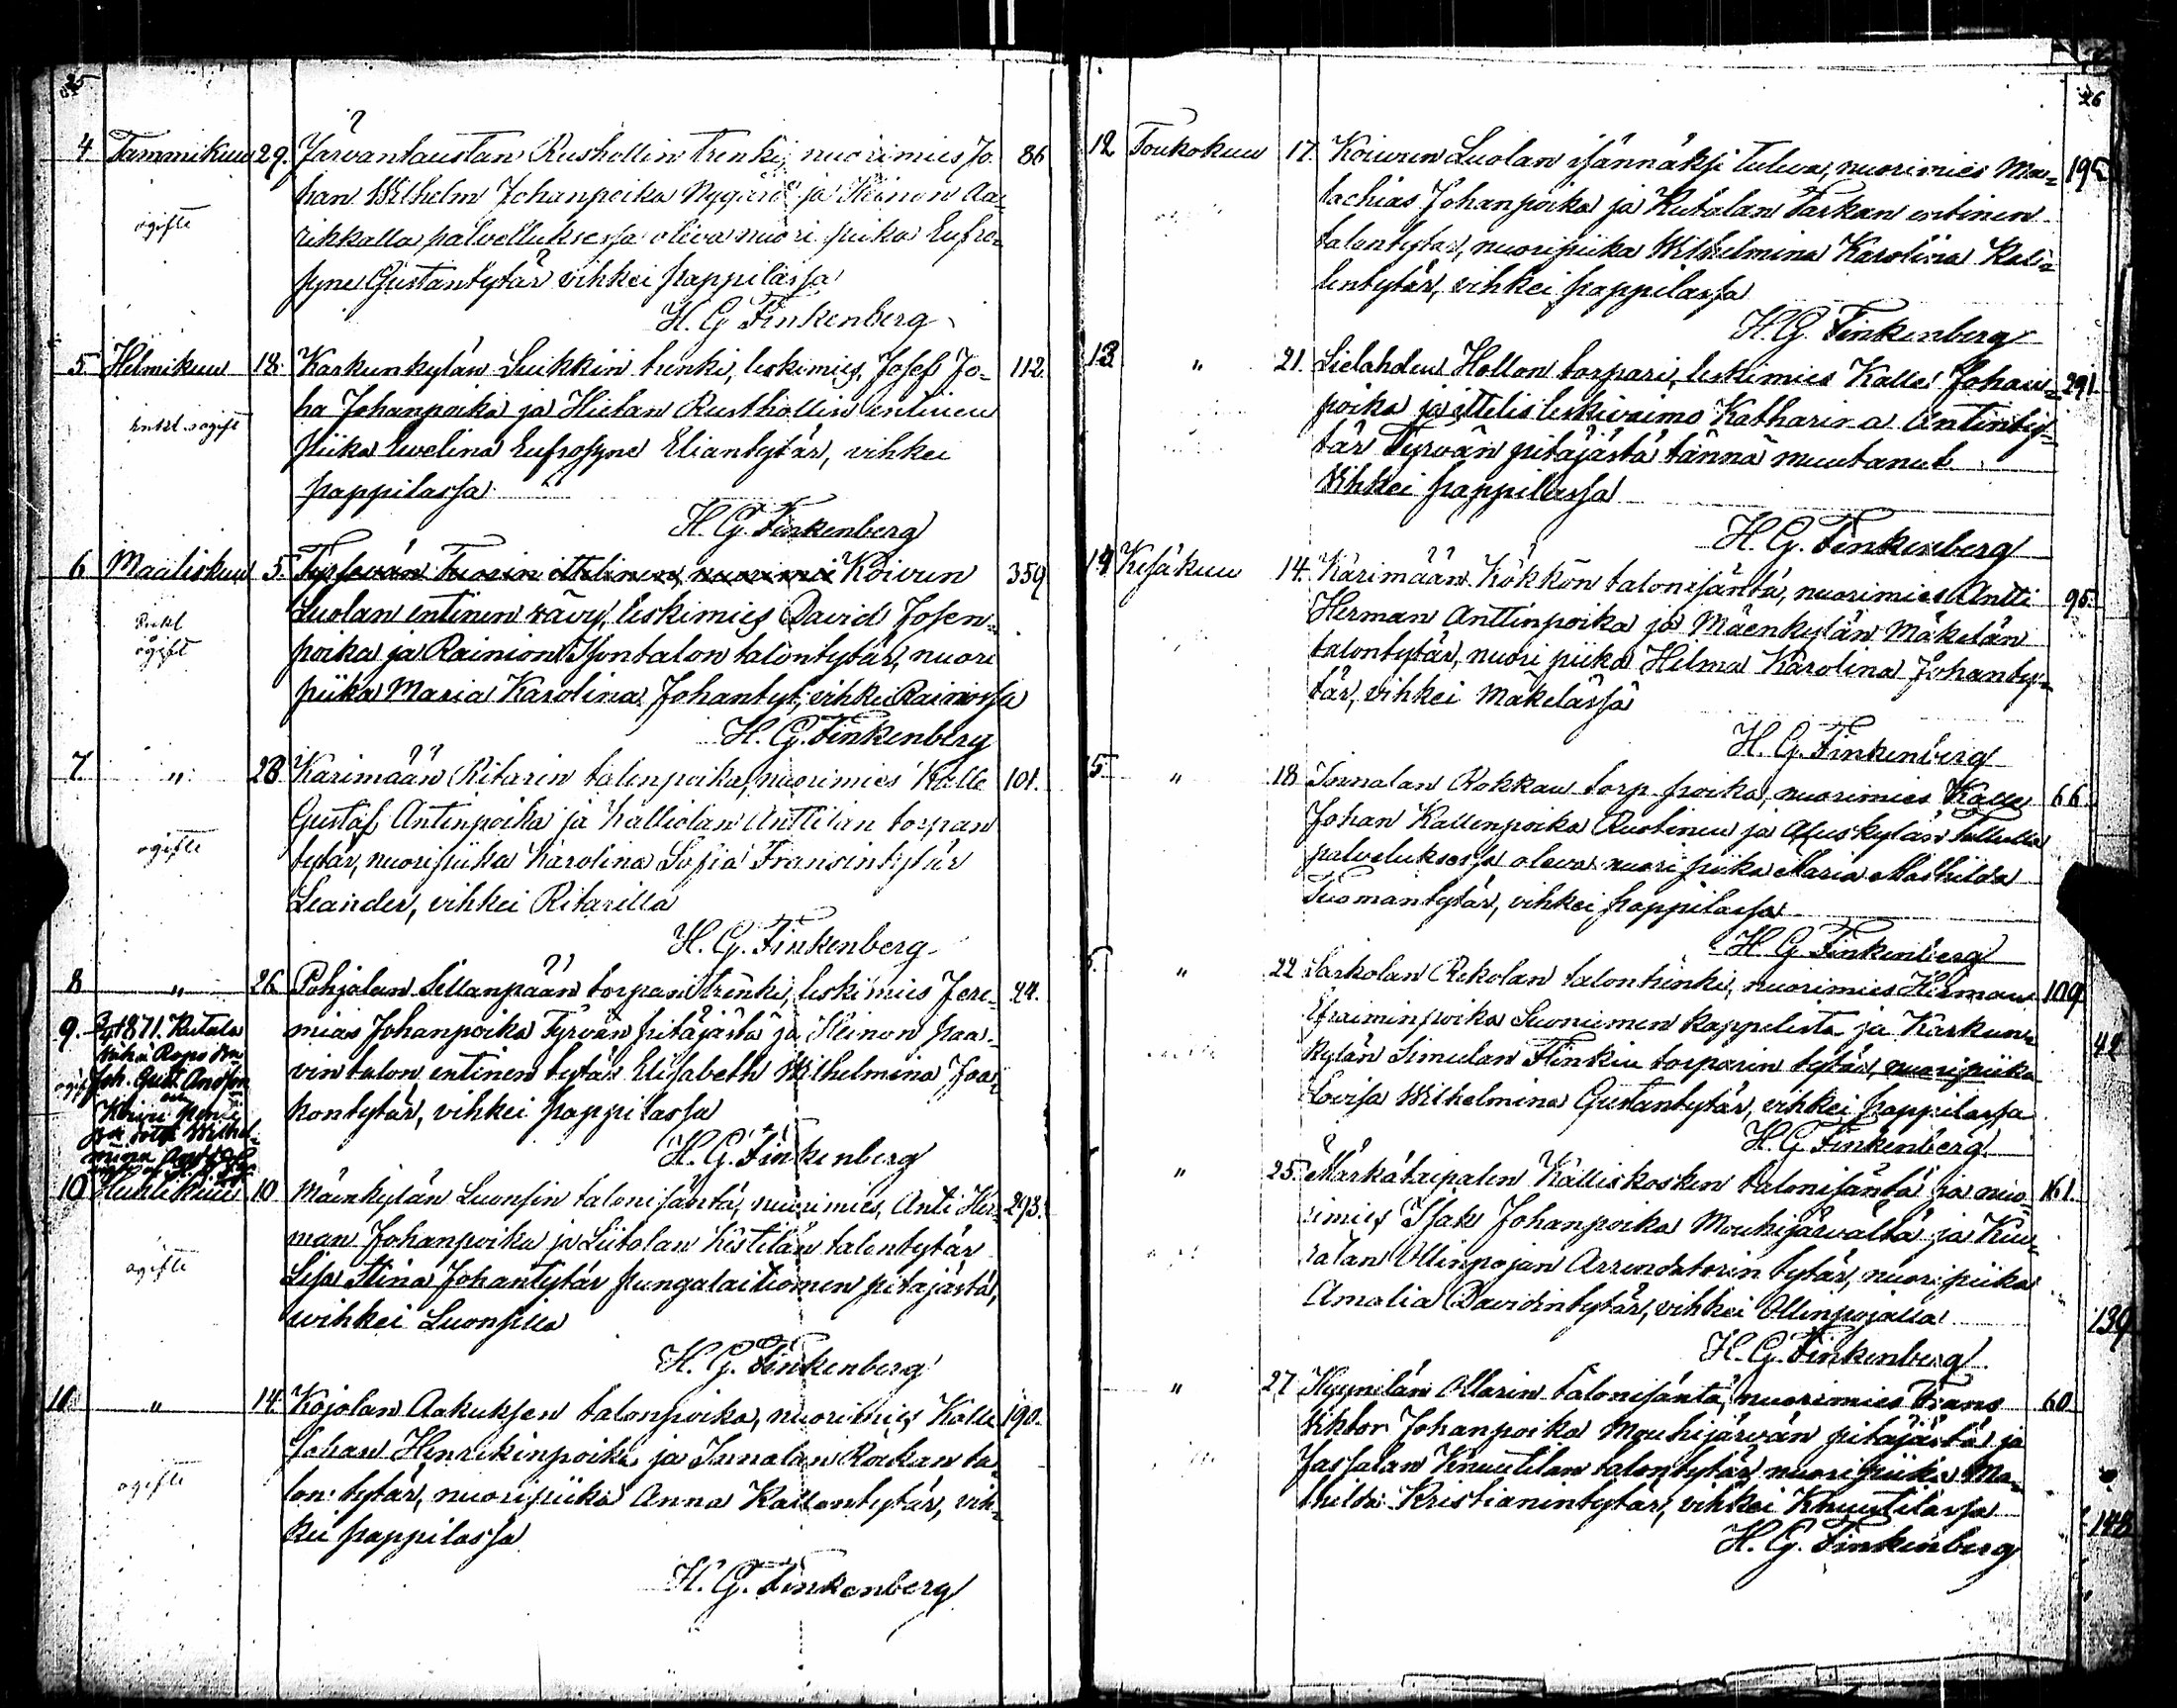 25
4 Tammikuu 29. Järvantaustan Rushollin trenki, nuorimies Jo- 86
han Wilhelm Johanpoika Nygård ja Heinon Aa-
ogifte
rikkalla palvelluksessa oliva nuori piika Eufro-
syne Gustantytär vihkei pappilassa
H. G Finkenberg
5. Helmikuu 18. Karkunkylän Luikkiin trenki, leskimies, Josef Jo- 112.
ha Johanpoika ja Hietan Rusthollin entinen
piika Ewelina Eufrosyne Eliantytär, vihkei
pappilassa
H. G. Finkenberg
6 Maaliskuu 5. Koivun 359
Luolan entinen vävy, leskimies David Josen-
ogift
poika ja Rainion Isontalon talontytär, nuori
piika Maria Karolina Johantyt, vihkei Rainiossa
H. G. Finkenberg
7 " 28. Karimään Ritarin talonpoika, nuorimies Kalle 101.
Gustaf Antinpoika ja Kalliolan Anttilan torpan
ogifte
tytär, nuoripiika Karolina Sofia Fransintytär
Leander, vihkei Ritarilla
H. G. Finkenberg
8 " 26. Pohjalan Sillanpään torpan trenki, leskimies Jere- 24.
9. 1871. Kutala
mias Johanpoika Tyrvän pitäjästä ja Heinon Paa-
Joh. Gust.
vin talon entinen tytär Elisabeth Wilhelmina Jaa-
kontytär, vihkei pappilassa
H. G. Finkenberg
10 Huhtikuu 10. Mäenkylän Luonsin talonisäntä, nuorimies, Anti Her- 293.
man Johanpoika ja Liitolan Kistilän talontytär
ogifte
Lisa Stina Johantytär Pungalaitiomen pitäjästä,
wihkei Luonsilla
H. G. Finkenberg
11 " 14. Kojolan Aakuksen talonpoika, nuorimies Kalle 190.
Johan Henrikinpoika ja Innalan Rokan ta-
ogifte
lon tytär, nuoripiika Anna Kallentytär, vih-
kei pappilassa
H. G. Finkenberg
26
12 Toukokuu 17. Koivun Luolan isännäksi tuleva, nuorimies Ma- 195
lachias Johanpoika ja Kutalan Tarkan entinen
talontytär, nuoripiika Wilhelmina Karolina Kal-
lentytär, vihkei pappilassa
H. G. Finkenberg
13 " 21. Sielahden Hollon torpari, leskimies Kalle Johan- 291.
poika ja ittelis leskivaimo Katharina Antinty-
tär Tyrvän pitäjästä tännä muutanut
Vihkei pappilassa
H. G. Finkenberg
14 Kesäkuu 14. Kärimään Kökkön talonisäntä, nuorimies Antti 95.
Herman Anttinpoika ja Mäenkylän Mäkelän
talontytär, nuori piika Helma Karolina Johanty-
tär, vihkei Mäkelässä
H. G. Finkenberg
15 " 18 Innalan Rokkan torp. poika, nuorimies Kalle 66.
Johan Kallenpoika ja
palveluksessa oleva nuori piika Maria Mathilda
Tuomantytär, vihkei pappilassa
H. G. Finkenberg
" 22 Sarkolan Rekolan talon trenki, nuorimies Herman 109
Efraiminpoika Suoniemen kappelista ja Karkun- 42
kylän Simulan Flinkin torparin tytär, nuoripiika
Lovisa Wilhelmina Gustantytär, vihkei pappilassa
H. G. Finkenberg
" 25. Märkätaipalen Kalliskosken talonisäntä ja nuo- 161.
rimies Isak Johanpoika Mouhijärvältä ja Kuu-
ralan Ollinpojan Arrendatorin tytär, nuoripiika
Amalia Davidintytär, vihkei Ollinpojalla 139
H. G. Finkenberg
" 27 Hyynilän Ollarin talonisäntä, nuorimies Frans 60
Viktor Johanpoika Mouhijärvän pitäjästä ja
Jassalan Knuutilan talontytär, nuoripiika Ma-
thilda Kristianintytär, vihkei Knuutilassa 148
H. G. Finkenberg